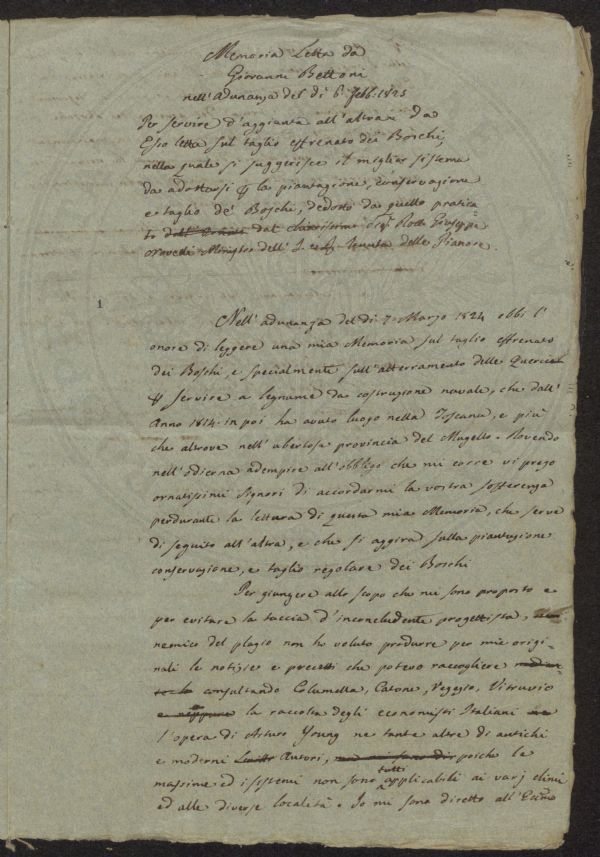 Memoria Letta da
Giovanni Bettoni
nell'adunanza del dì 6. Febb. 1825
Per servire d'aggiunta all'altra da
Esso letta sul taglio effrenato dei Boschi,
nella quale si suggerisce il miglior sistema
da adottarsi p la piantagione, conservazione
e taglio de' Boschi, dedotto da quello pratica-
to dal Sig. Giuseppe
Ministro dell' I. e R. Tenuta delle Pianore.
1
Nell'adunanza del dì 7. Marzo 1824 ebbi l'
onore di leggere una mia Memoria sul taglio effrenato
dei Boschi, e specialmente sull'atterramento delle Querci
p servire a legname da costruzione navale, che dall'
Anno 1814. in poi ha avuto luogo nella Toscana, e più
che altrove nell'ubertosa provincia del Mugello. Dovendo
nell'odierna adempire all'obbligo che mi corre vi prego
ornatissimi Signori di accordarmi la vostra sofferenza
perdurante la lettura di questa mia Memoria, che serve
di seguito all'altra, e che si aggira sulla piantagione
conservazione, e taglio regolare dei Boschi
Per giungere allo scopo che mi sono proposto e
per evitare la taccia d'inconcludente progettista,
nemico del plagio non ho voluto produrre per mie origi-
nali le notizie e precetti che potevo raccogliere
consultando Columella, Catone, Vegezio, Vitruvio
e neppure la raccolta degli economisti Italiani ne
l'opera di Arturo Young ne tante altre di antichi
e moderni Autori, poiche le
massime ed i sistemi non sono tutti applicabili ai varj climi
ed alle diverse località. Io mi sono diretto all'